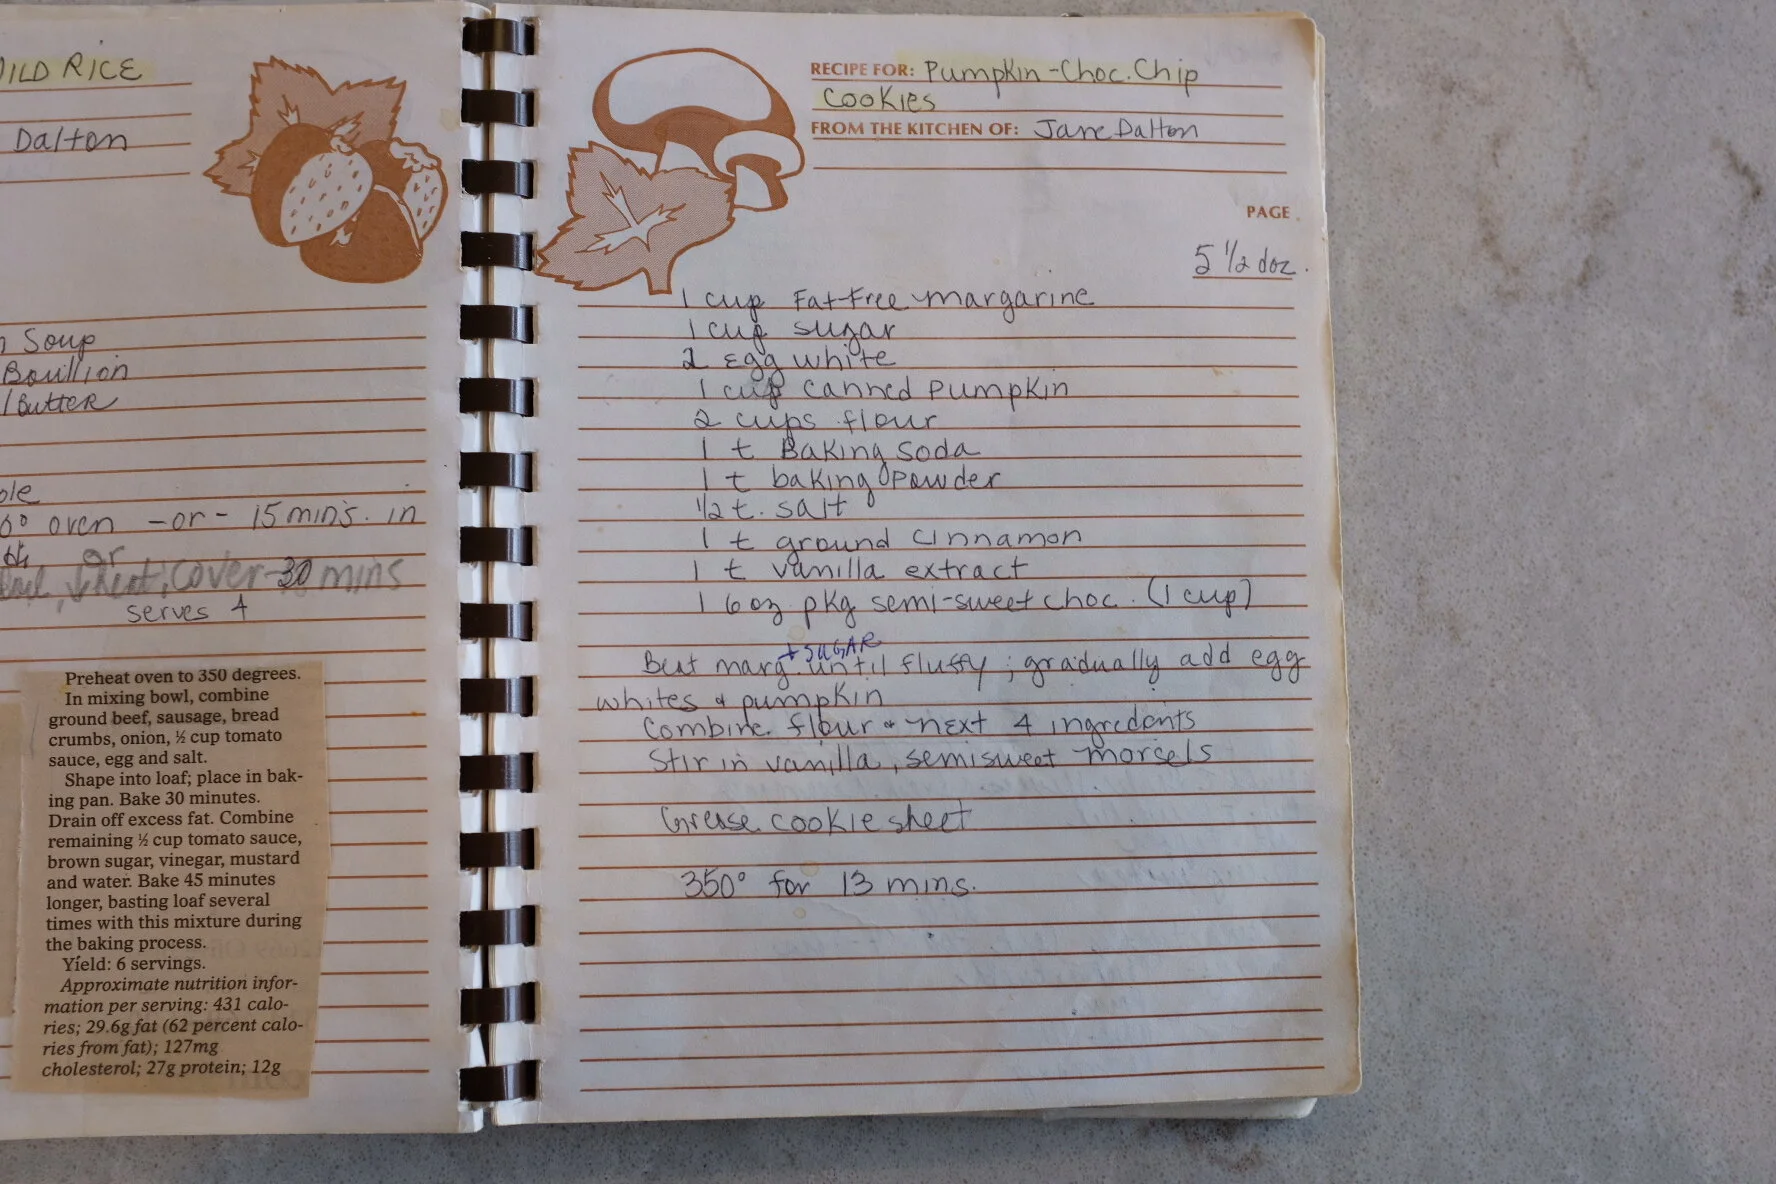 WILD RICE
Dalton
Soup
Bouillion
/Butter
oven -or- 15 mins. in
or
, cover-30 mins
serves 4
Preheat oven to 350 degrees.
In mixing bowl, combine
ground beef, sausage, bread
crumbs, onion, ½ cup tomato
sauce, egg and salt.
Shape into loaf; place in bak-
ing pan. Bake 30 minutes.
Drain off excess fat. Combine
remaining ½ cup tomato sauce,
brown sugar, vinegar, mustard
and water. Bake 45 minutes
longer, basting loaf several
times with this mixture during
the baking process.
Yield: 6 servings.
Approximate nutrition infor-
mation per serving: 431 calo-
ries; 29.6g fat (62 percent calo-
ries from fat); 127mg
cholesterol; 27g protein; 12g
RECIPE FOR: Pumpkin-Choc. Chip
Cookies
FROM THE KITCHEN OF: Jane Dalton
PAGE
5 1/2 doz.
1 cup Fat-Free margarine
1 cup sugar
2 egg white
1 cup canned pumpkin
2 cups flour
1 t Baking Soda
1 t baking powder
1/2 t. salt
1 t ground cinnamon
1 t vanilla extract
1 6 oz pkg semi-sweet choc. (1 cup)
+ SUGAR
Beat marg. until fluffy; gradually add egg
whites & pumpkin
Combine flour & next 4 ingredents
Stir in vanilla, semisweet morsels
Grease cookie sheet
350° for 13 mins.